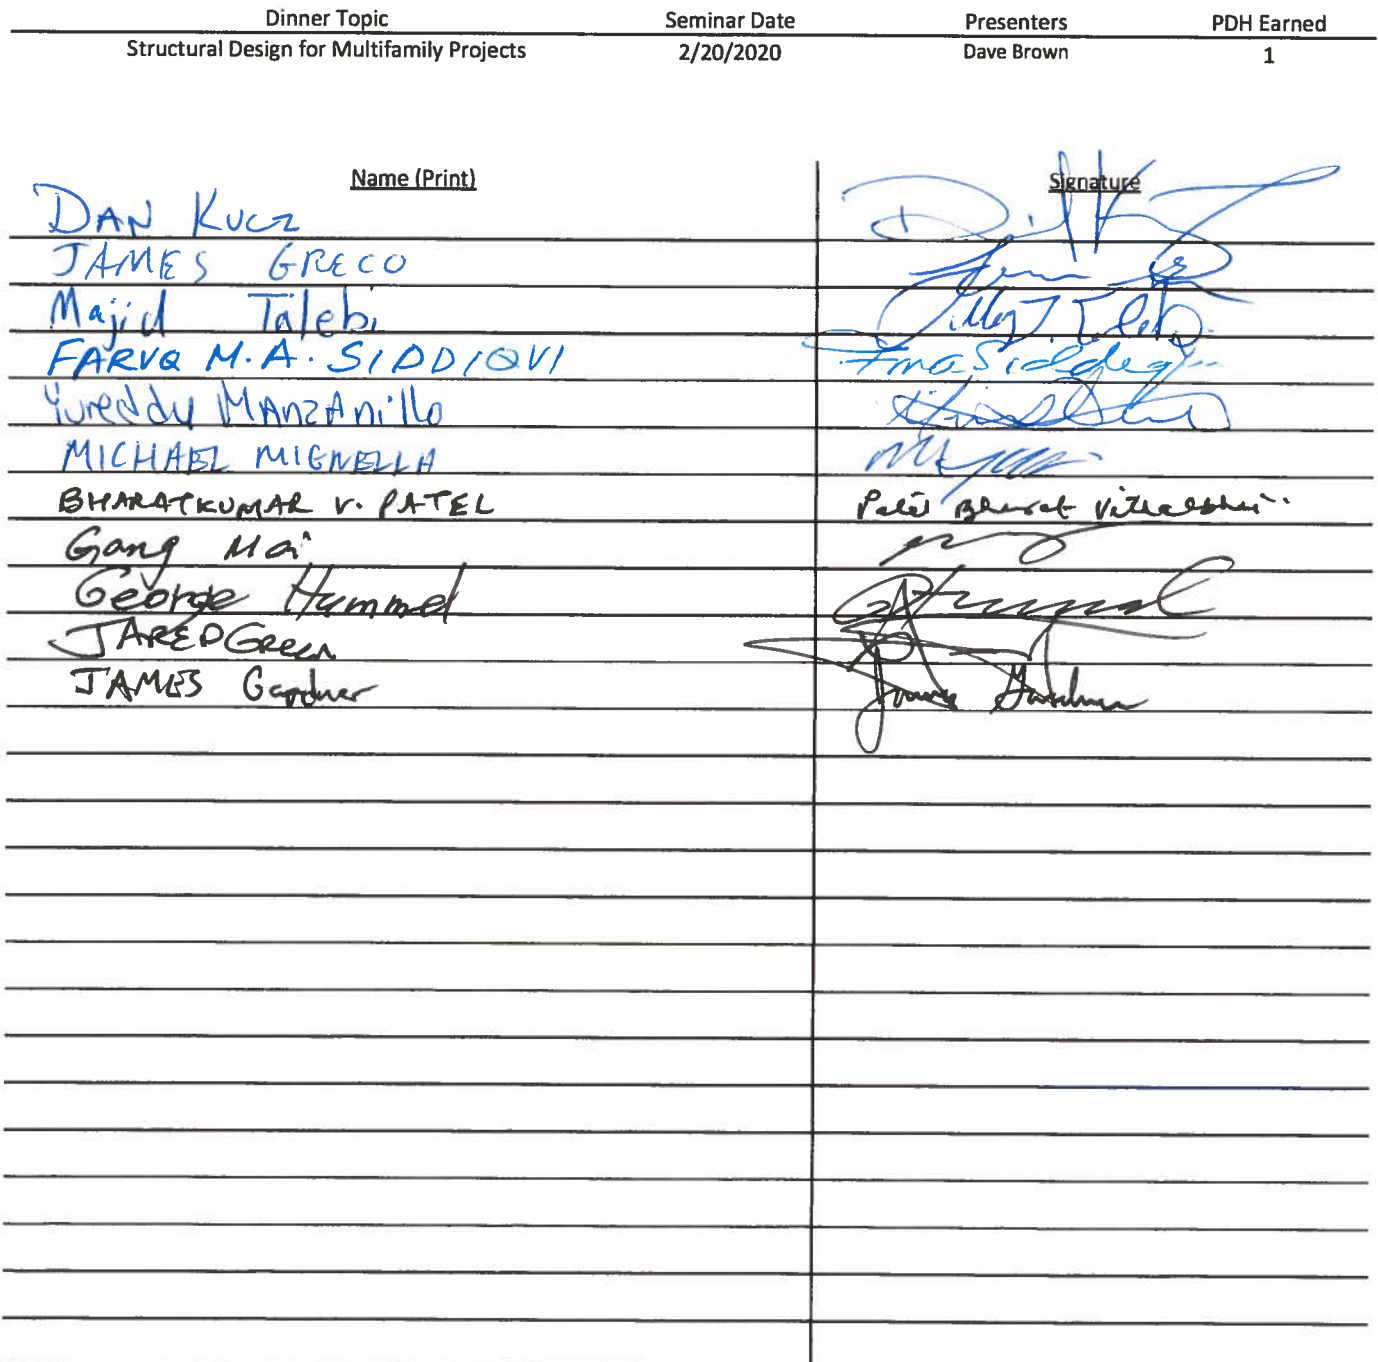 Dinner Topic Seminar Date Presenters PDH Earned
Structural Design for Multifamily Projects 2/20/2020 Dave Brown 1
Name (Print) Signature
DAN KUCZ
JAMES GRECO
Majid Talebi
FARUQ M.A. SIDDIQUI
Yureddy MANZANillo
MICHAEL MIGNELLA
BHARATKUMAR V. PATEL Patel Bharat Vithalbhai
Gang Mai
George Hummel
JARED Green
JAMES Gardner James Gardner